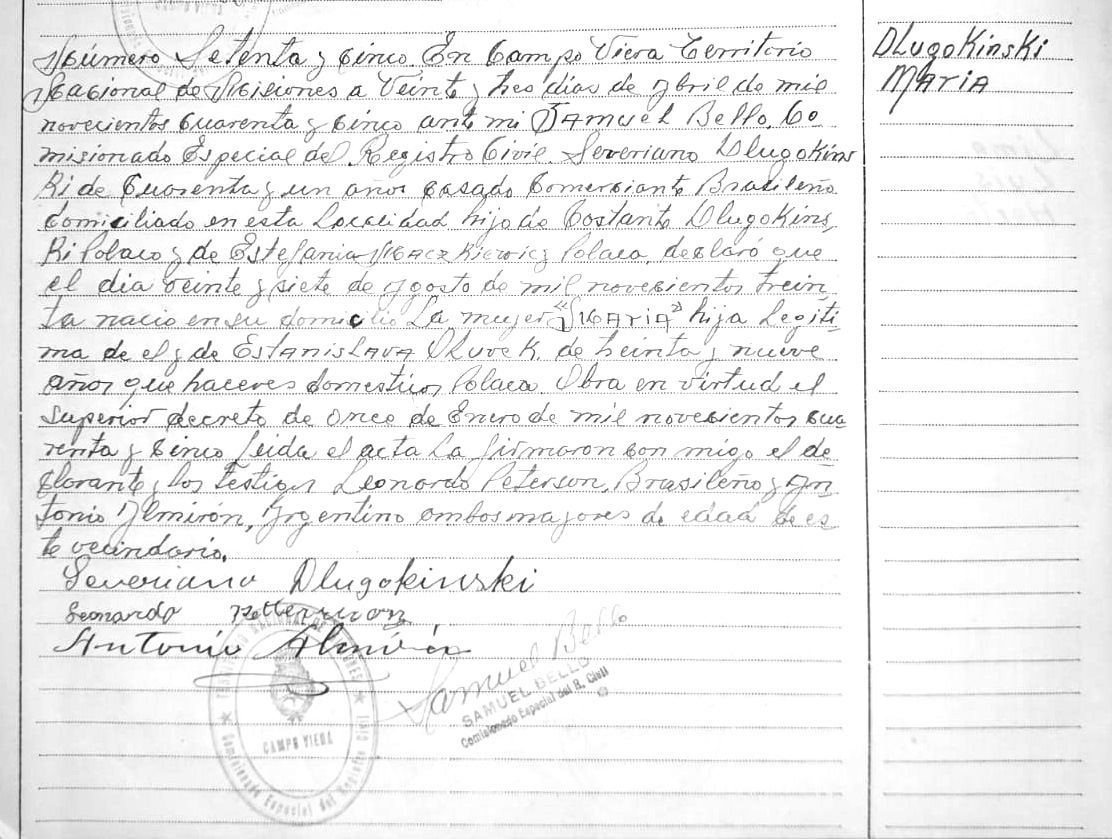 Número Setenta y Cinco En Campo Viera Territorio
Nacional de Misiones a Veinte y tres dias de Abril de mil
novecientos Cuarenta y Cinco ante mi SAmuel Bello, Co
misionado Especial del Registro Civil. Severiano Dlugokins
Ki de Cuarenta y un años Casado Comerciante Brasileño
domiciliado en esta Localidad hijo de Costante Dlugokins,
Ki Polaco y de Estefania Polaca, declaró que
el dia veinte y siete de Agosto de mil novecientos trein,
ta nacio en su domicilio La mujer "MARiA" hija Legiti-
ma de el y de EstAnisLAvA de treinta y nueve
años que haceres domesticos Polaca. Obra en virtud el
Superior decreto de Once de Enero de mil novecientos cua
renta y Cinco Leida el acta La firmaron con migo el de
clarante y los testigos Leonardo Peterson, Brasileño y An
tonio Almirón, Argentino ambos mayores de edad de es
te vecindario.
Severiano Dlugokinski
Leonardo
Antonio Almirón
Samuel Bello
SAMUEL BELLO
Comisionado Especial del R. Civil
CAMPO VIERA
Comisionado Especial del Registro Civil
DLugoKinski
MARiA